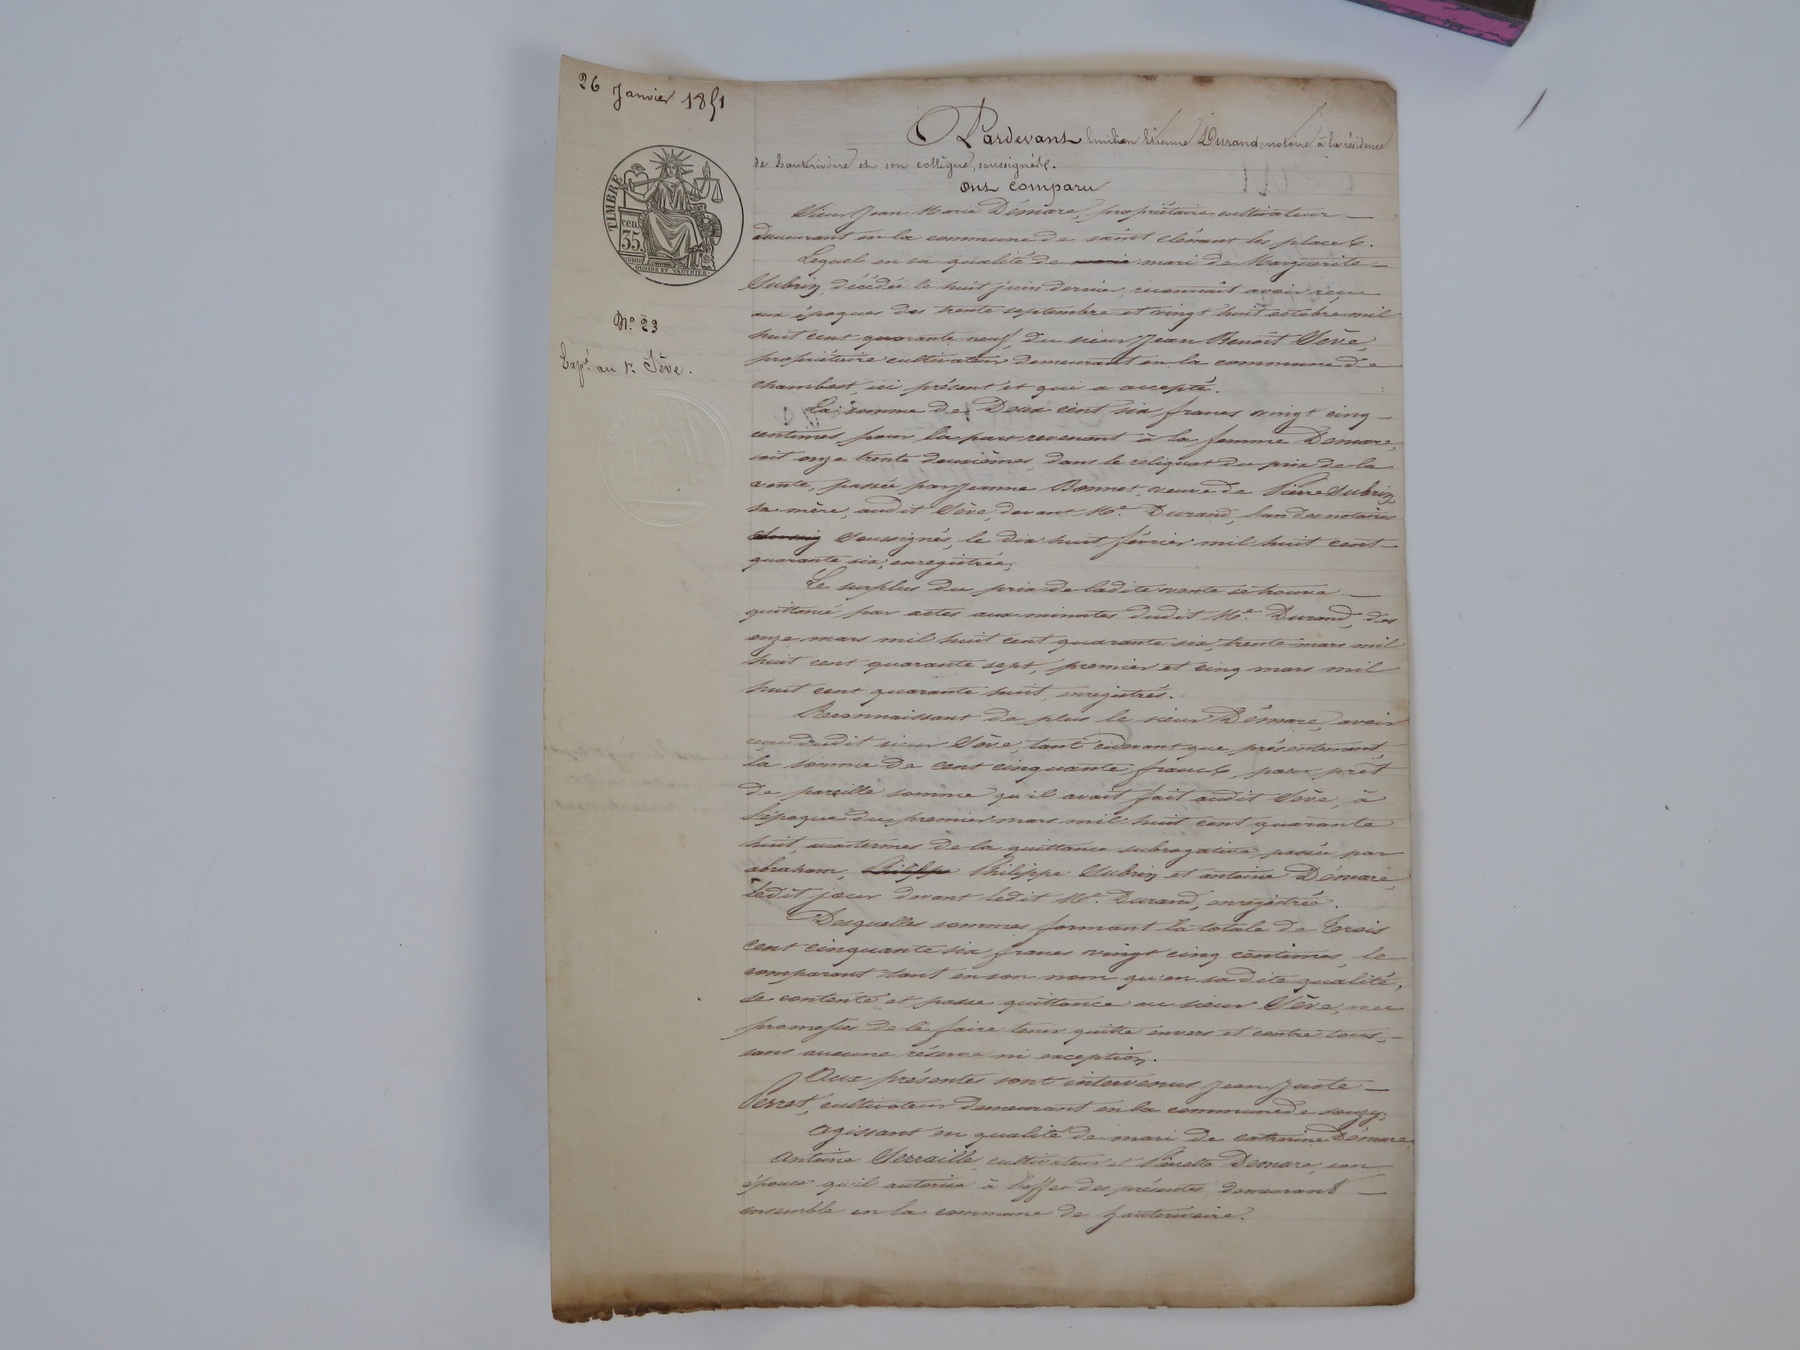 26 Janvier 1851
TIMBRE
cen.
35.
N.º 23
Exp.é au s.r Sève.
Pardevant Emilien Etienne Durand, notaire à la résidence
de hauterivoire et son collègue, soussignés.
ont comparu
Sieur Jean Marie Démare, propriétaire cultivateur
demeurant en la commune de saint clément les places.
Lequel en sa qualité de mari de Marguerite
Subrin, décédée le huit juin dernier, reconnait avoir reçu
aux époques des trente septembre et vingt huit octobre mil
huit cent quarante neuf, du sieur Jean Benoît Sève,
propriétaire cultivateur demeurant en la commune de
chambost, ici présent et qui a accepté.
La somme de Deux cent six francs vingt cinq
centimes, pour la part revenant à la femme Démare,
soit onze trente deuxièmes, dans le reliquat du prix de la
vente, passée par Jeanne Bonnet, veuve de Pierre Subrin,
sa mère, audit Sève, devant M.e Durand, l'un des notaires
soussignés, le dix huit février mil huit cent
quarante six, enregistrée;
Le surplus du prix de ladite vente se trouve
quittancé par actes aux minutes dudit M.e Durand, des
onze mars mil huit cent quarante six, trente mars mil
huit cent quarante sept, premier et cinq mars mil
huit cent quarante huit, enregistrés.
Reconnaissant de plus le sieur Démare, avoir
reçu dudit sieur Sève, tant cidevant que présentement
la somme de cent cinquante francs, pour prêt
de pareille somme qu'il avait fait audit Sève, à
l'époque du premier mars mil huit cent quarante
huit, aux termes de la quittance subrogative, passée par
abraham, Philippe Subrin et antoine Démare,
ledit jour devant ledit M.e Durand, enregistrée.
Desquelles sommes formant la totale de Trois
cent cinquante six francs vingt cinq centimes, le
comparant tant en son nom qu'en sa dite qualité,
se contente et passe quittance au sieur Sève, avec
promesses de le faire tenir quitte envers et contre tous,
sans aucune réserve ni exception.
Aux présentes sont intervenus Jean Juste
Perret, cultivateur demeurant en la commune de souzy,
agissant en qualité de mari de catherine Démare
Antoine Serraille cultivateur et Pierrette Demare, son
épouse qu'il autorise à l'effet des présentes, demeurant
ensemble en la commune de hauterivoire.